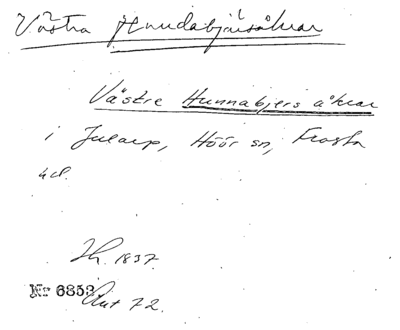 Västra Hundabjärsåkrar
Västre Hunnabjers åkrar
i Jularp, Höör sn, Frosta
hd.
Sk. 1837.
No 6353 Akt 72.